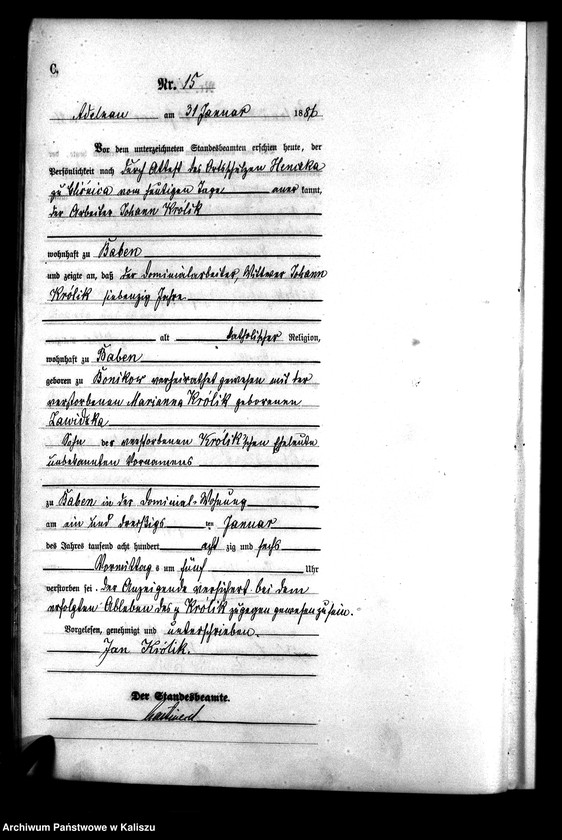 C.
Nr. 15
Adelnau am 31 Januar 1886
Vor dem unterzeichneten Standesbeamten erschien heute, der
Persönlichkeit nach durch Attest des Ortsschulzen Henczka
zu vom heutigen Tage aner kannt,
der Arbeiter Johann Królik
wohnhaft zu Baben
und zeigte an, daß der Dominialarbeiter, Wittwer Johann
Królik siebenzig Jahre
alt katholischer Religion,
wohnhaft zu Baben
geboren zu Bonikow verheirathet gewesen mit der
verstorbenen Marianna Królik geborenen
Zawidzka
Sohn der verstorbenen Królik'schen Eheleute
unbekannten Vornamens
zu Baben in der Dominial-Wohnung
am ein und dreißigs ten Januar
des Jahres tausend acht hundert acht zig und sechs
Vormittag s um fünf Uhr
verstorben sei. Der Anzeigende versichert bei dem
erfolgten Ableben des p Królik zugegen gewesen zu sein.
Vorgelesen, genehmigt und unterschrieben.
Jan Królik.
Der Standesbeamte.
Archiwum Państwowe w Kaliszu